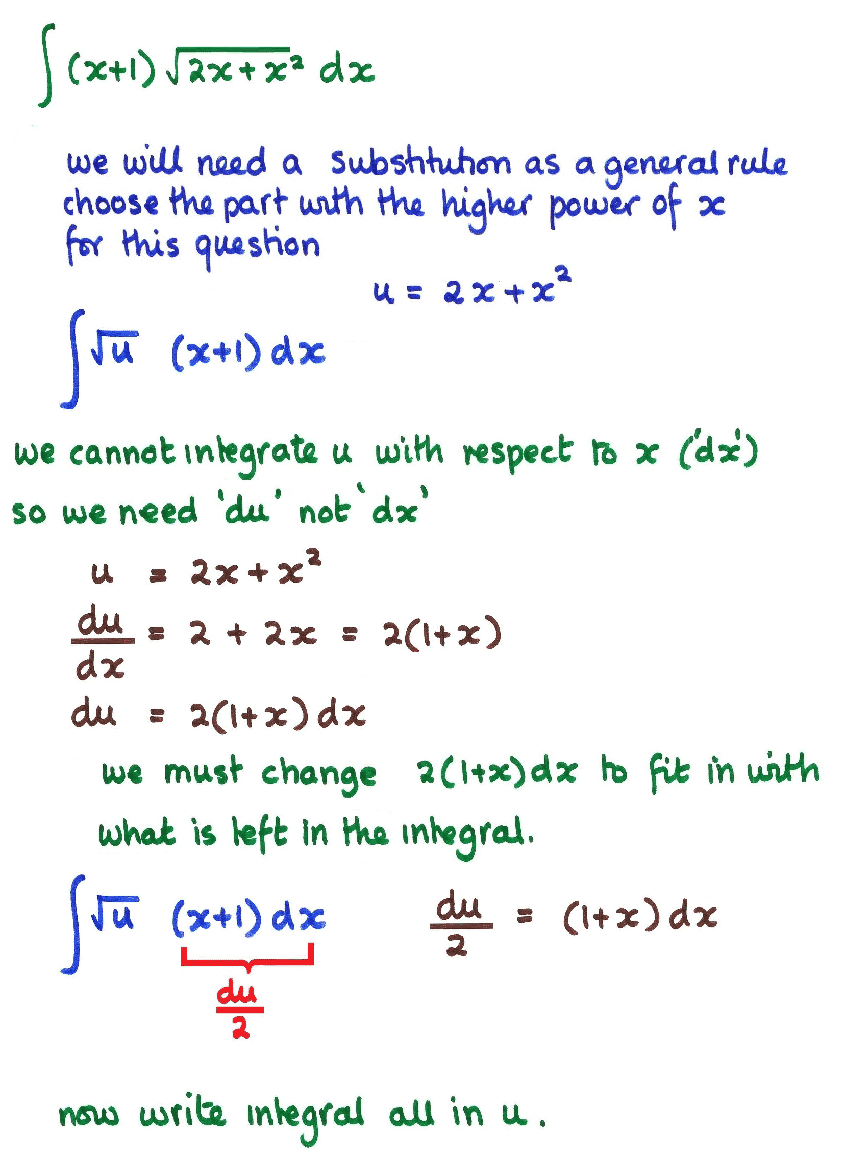 ∫ (x+1) √(2x + x²) dx
we will need a substitution as a general rule
choose the part with the higher power of x
for this question
u = 2x + x²
∫ √u (x+1) dx
we cannot integrate u with respect to x ('dx')
so we need 'du' not 'dx'
u = 2x + x²
du/dx = 2 + 2x = 2(1+x)
du = 2(1+x) dx
we must change 2(1+x)dx to fit in with
what is left in the integral.
∫ √u (x+1) dx du/2 = (1+x) dx
du/2
now write integral all in u.